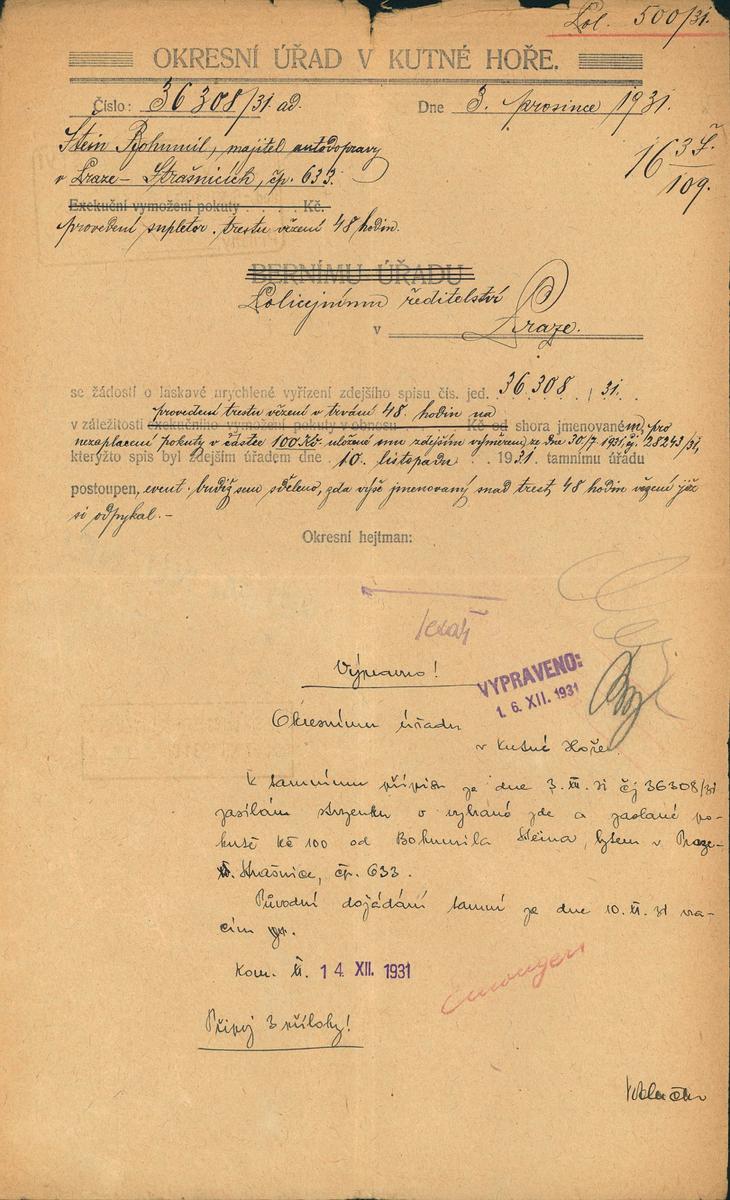 Pol. 500/31.
OKRESNÍ ÚŘAD V KUTNÉ HOŘE.
Číslo: 36308/31 ad. Dne 3. prosince 1931.
Stein Bohumil, majitel autodopravy
v Praze - Strašnicích, čp. 633.
16 3/Š 109.
Exekuční vymožení pokuty . . . . . Kč.
provedení supletor. trestu vězení 48 hodin.
BERNÍMU ÚŘADU
Policejnímu ředitelství
v Praze.
se žádostí o laskavé urychlené vyřízení zdejšího spisu čís. jed. 36.308 / 31.
provedení trestu vězení v trvání 48 hodin na
v záležitosti exekučního vymožení pokuty v obnosu Kč od shora jmenovaném, pro
nezaplacení pokuty v částce 100 Kč uložené mu zdejším výměrem ze dne 30/7 1931 čj. 28243/31,
kterýžto spis byl zdejším úřadem dne 10. listopadu 1931 tamnímu úřadu
postoupen, event. budiž sem sděleno, zda výše jmenovaný snad trest 48 hodin vězení již
si odpykal.-
Okresní hejtman:
Výpravno!
VYPRAVENO:
1 6. XII. 1931
Okresnímu úřadu
v Kutné Hoře.
K tamnímu přípisu ze dne 3. XII. 31 čj 36308/31
zasílám stvrzenku o vybrané zde a zaslané po-
kutě Kč 100 od Bohumila Steina, bytem v Praze-
Strašnice, čp. 633.
Původní dožádání tamní ze dne 10. XI. 31 vra-
cím
Kom. II. 1 4 XII. 1931
Připoj 3 přílohy!